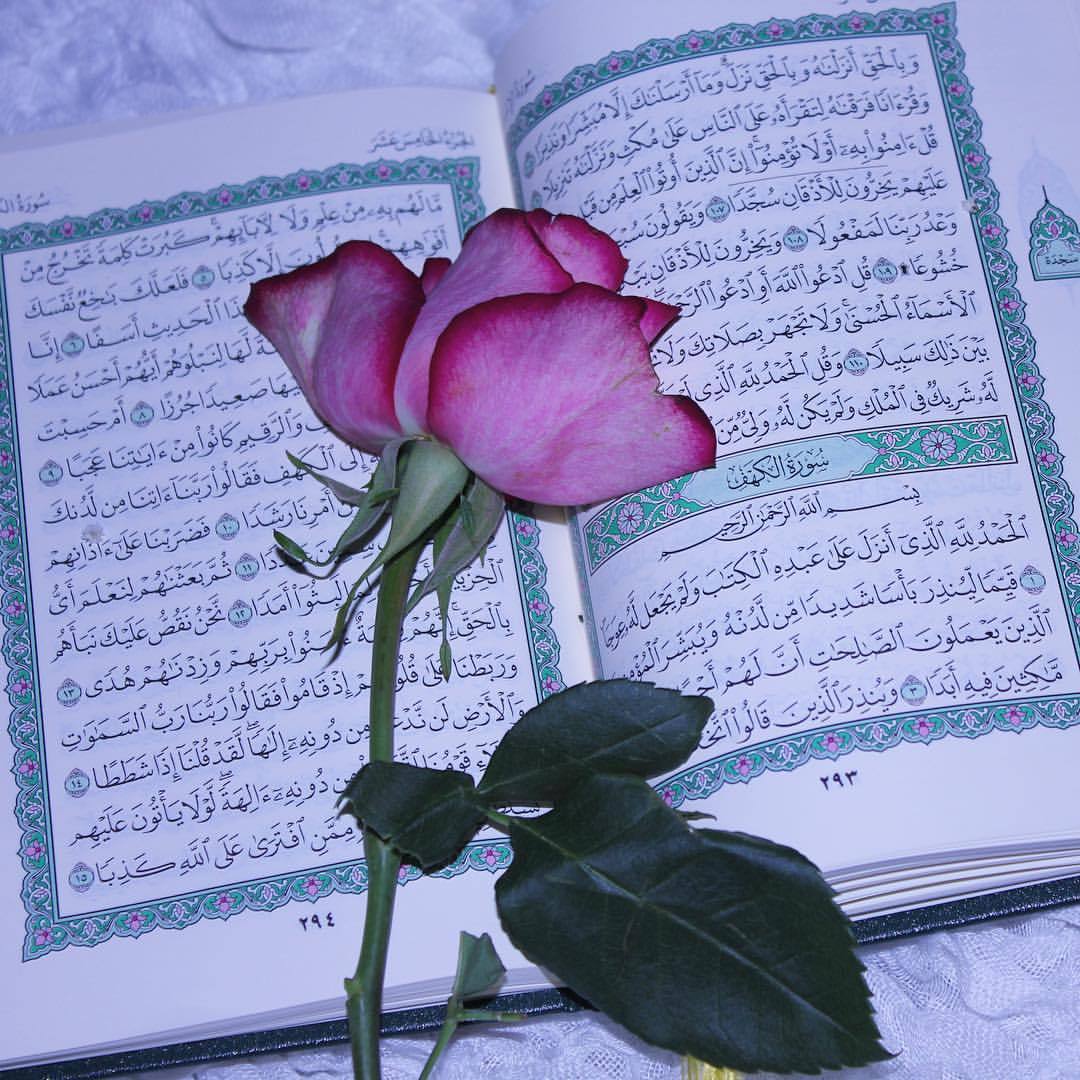 سُورَةُ
وَبِٱلْحَقِّ أَنزَلْنَٰهُ وَبِٱلْحَقِّ نَزَلَ وَمَآ أَرْسَلْنَٰكَ إِلَّا مُبَشِّرًا وَنَذِيرًا
وَقُرْءَانًا فَرَقْنَٰهُ لِتَقْرَأَهُۥ عَلَى ٱلنَّاسِ عَلَىٰ مُكْثٍ وَنَزَّلْنَٰهُ تَنزِيلًا
قُلْ ءَامِنُوا۟ بِهِۦٓ أَوْ لَا تُؤْمِنُوٓا۟ إِنَّ ٱلَّذِينَ أُوتُوا۟ ٱلْعِلْمَ مِن
عَلَيْهِمْ يَخِرُّونَ لِلْأَذْقَانِ سُجَّدًا ١٠٧ وَيَقُولُونَ
وَعْدُ رَبِّنَا لَمَفْعُولًا ١٠٨ وَيَخِرُّونَ لِلْأَذْقَانِ
خُشُوعًا ١٠٩ قُلِ ٱدْعُوا۟ ٱللَّهَ أَوِ ٱدْعُوا۟
ٱلْأَسْمَآءُ ٱلْحُسْنَىٰ وَلَا تَجْهَرْ بِصَلَاتِكَ وَلَا
بَيْنَ ذَٰلِكَ سَبِيلًا ١١٠ وَقُلِ ٱلْحَمْدُ لِلَّهِ ٱلَّذِى
لَّهُۥ شَرِيكٌ فِى ٱلْمُلْكِ وَلَمْ يَكُن لَّهُۥ وَلِىٌّ مِّنَ
سُورَةُ الكَهْفِ
بِسْمِ ٱللَّهِ ٱلرَّحْمَٰنِ ٱلرَّحِيمِ
ٱلْحَمْدُ لِلَّهِ ٱلَّذِىٓ أَنزَلَ عَلَىٰ عَبْدِهِ ٱلْكِتَٰبَ وَلَمْ يَجْعَل لَّهُۥ عِوَجَا
١ قَيِّمًا لِّيُنذِرَ بَأْسًا شَدِيدًا مِّن لَّدُنْهُ وَيُبَشِّرَ
ٱلَّذِينَ يَعْمَلُونَ ٱلصَّٰلِحَٰتِ أَنَّ لَهُمْ
مَّٰكِثِينَ فِيهِ أَبَدًا ٣ وَيُنذِرَ ٱلَّذِينَ قَالُوا۟
٢٩٣
سَجْدَة
الجُزْءُ الخَامِسَ عَشَرَ
سُورَةُ
مَّا لَهُم بِهِۦ مِنْ عِلْمٍ وَلَا لِءَابَآئِهِمْ كَبُرَتْ كَلِمَةً تَخْرُجُ مِنْ
أَفْوَٰهِهِمْ إِلَّا كَذِبًا ٥ فَلَعَلَّكَ بَٰخِعٌ نَّفْسَكَ
ٱلْحَدِيثِ أَسَفًا ٦ إِنَّا
لَّهَا لِنَبْلُوَهُمْ أَيُّهُمْ أَحْسَنُ عَمَلًا
صَعِيدًا جُرُزًا ٨ أَمْ حَسِبْتَ
وَٱلرَّقِيمِ كَانُوا۟ مِنْ ءَايَٰتِنَا عَجَبًا ٩
إِلَى ٱلْكَهْفِ فَقَالُوا۟ رَبَّنَآ ءَاتِنَا مِن لَّدُنكَ
أَمْرِنَا رَشَدًا ١٠ فَضَرَبْنَا عَلَىٰٓ ءَاذَانِهِمْ
١١ ثُمَّ بَعَثْنَٰهُمْ لِنَعْلَمَ أَىُّ
لَبِثُوٓا۟ أَمَدًا ١٢ نَّحْنُ نَقُصُّ عَلَيْكَ نَبَأَهُم
بِٱلْحَقِّ بِرَبِّهِمْ وَزِدْنَٰهُمْ هُدًى ١٣
وَرَبَطْنَا عَلَىٰ إِذْ قَامُوا۟ فَقَالُوا۟ رَبُّنَا رَبُّ ٱلسَّمَٰوَٰتِ
وَٱلْأَرْضِ لَن مِن دُونِهِۦٓ إِلَٰهًا لَّقَدْ قُلْنَآ إِذًا شَطَطًا ١٤
قَوْمُنَا مِن دُونِهِۦٓ ءَالِهَةً لَّوْلَا يَأْتُونَ عَلَيْهِم
مِمَّنِ ٱفْتَرَىٰ عَلَى ٱللَّهِ كَذِبًا ١٥
٢٩٤